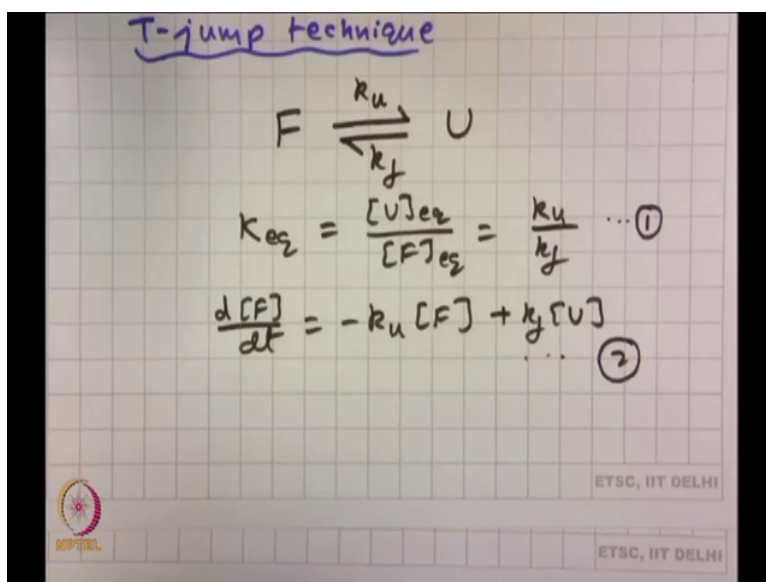 T-jump technique
k_u
F ⇌ U
k_f
K_eq = [U]_eq / [F]_eq = k_u / k_f ...①
d[F]/dt = -k_u [F] + k_f [U]
... ②
ETSC, IIT DELHI
NPTEL
ETSC, IIT DELHI